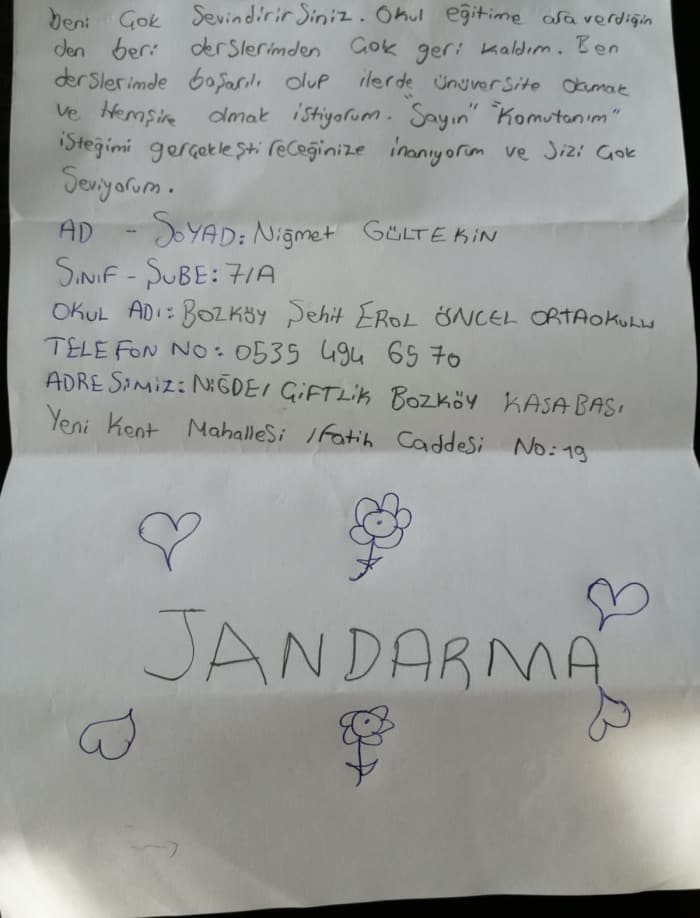 beni Çok Sevindirirsiniz. Okul eğitime ara verdiğin
den beri derslerimden Çok geri kaldım. Ben
derslerimde başarılı olup ilerde ünüversite okumak
ve Hemşire olmak istiyorum. "Sayın" "Komutanım"
isteğimi gerçekleştireceğinize inanıyorum ve Sizi Çok
Seviyorum.
AD - SOYAD: Niğmet GÜLTEKİN
SINIF - ŞUBE: 7/A
OKUL ADI: BOZKÖY Şehit EROL ÖNCEL ORTAOKULU
TELEFON NO: 0535 494 65 70
ADRESİMİZ: NİĞDE/ ÇİFTLİK BOZKÖY KASABASI
Yeni Kent Mahallesi /Fatih Caddesi No:19
JANDARMA